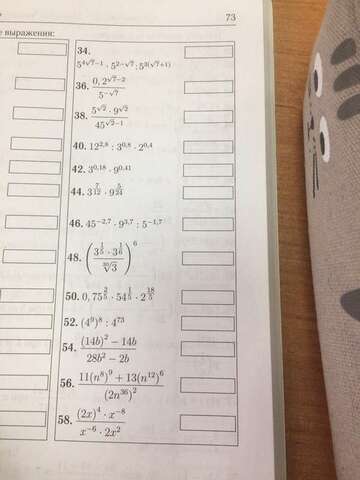 73
е выражения:
34.
5^{4√7−1} · 5^{2−√7} : 5^{3(√7+1)}
36. 0,2^{√7−2} / 5^{−√7}
38. 5^{√2} · 9^{√2} / 45^{√2−1}
40. 12^{2,8} : 3^{0,8} · 2^{0,4}
42. 3^{0,18} · 9^{0,41}
44. 3^{7/12} · 9^{5/24}
46. 45^{−2,7} · 9^{3,7} : 5^{−1,7}
48. (3^{1/5} · 3^{1/6} / ^{30}√3)^6
50. 0,75^{2/5} · 54^{1/5} · 2^{18/5}
52. (4^9)^8 : 4^{73}
54. (14b)^2 − 14b / 28b^2 − 2b
56. 11(n^8)^9 + 13(n^{12})^6 / (2n^{36})^2
58. (2x)^4 · x^{−8} / x^{−6} · 2x^2